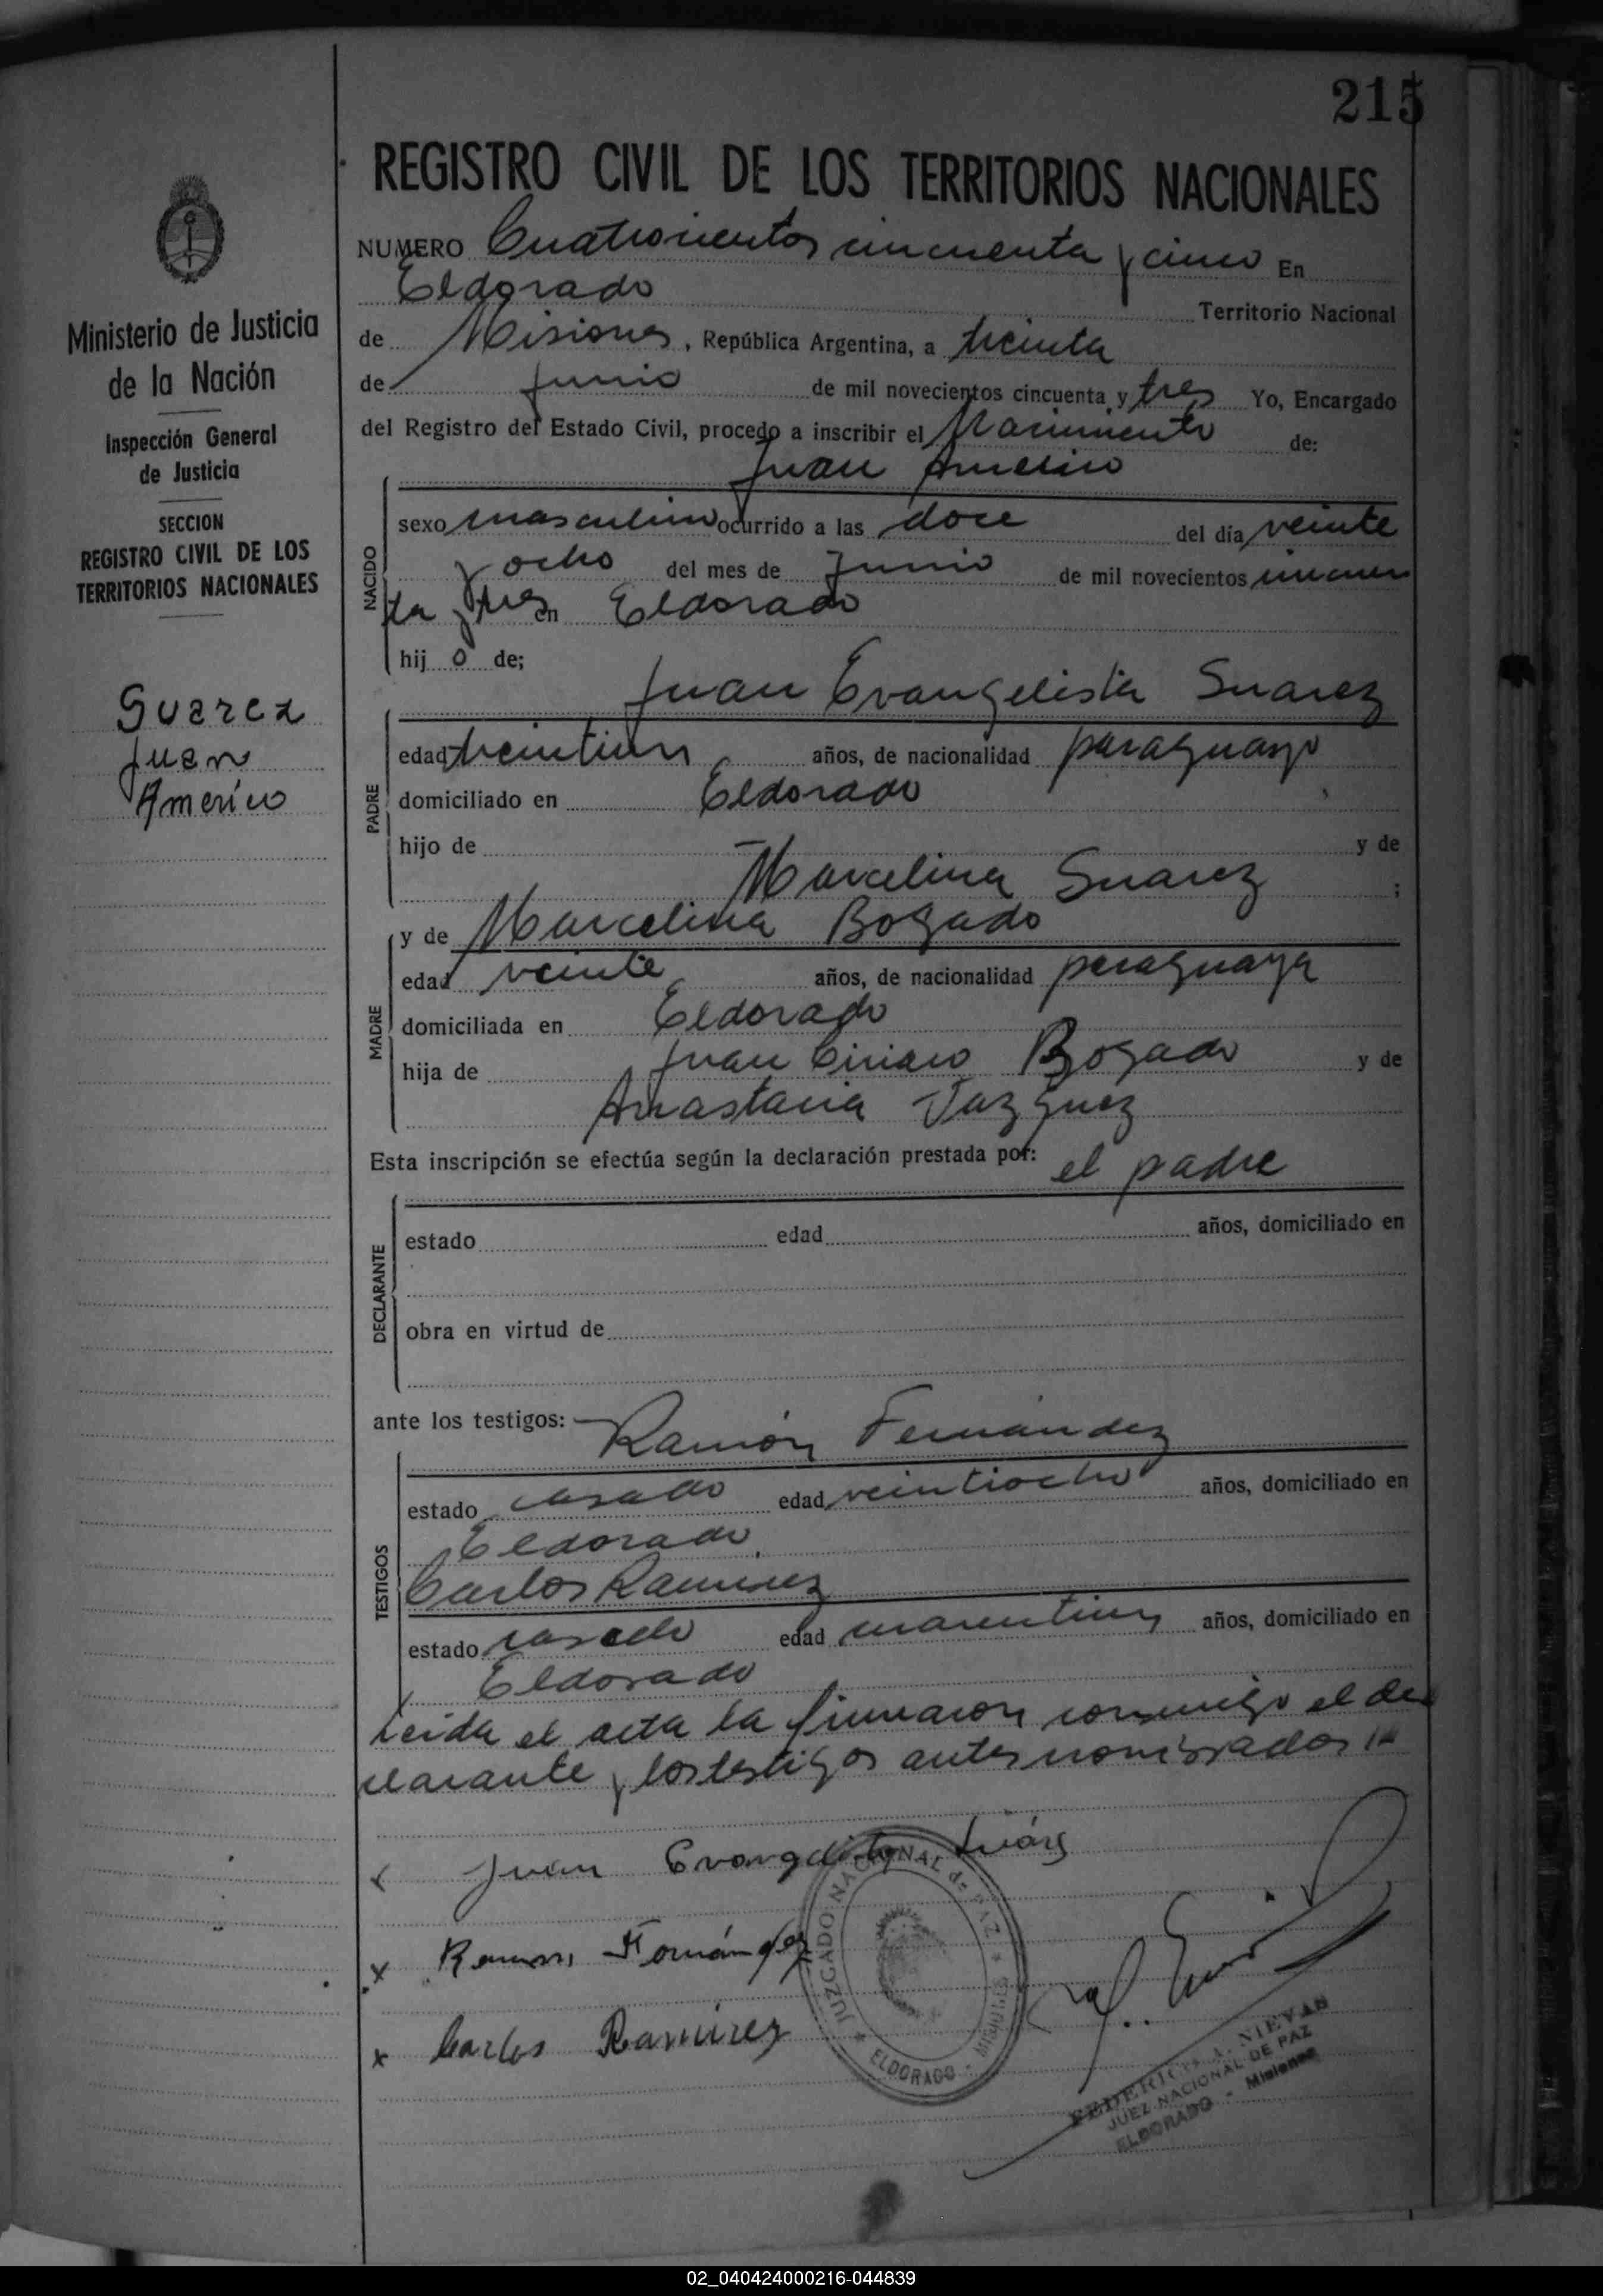 215
REGISTRO CIVIL DE LOS TERRITORIOS NACIONALES
NUMERO Cuatrocientos cincuenta y cinco En
Eldorado Territorio Nacional
de Misiones, República Argentina, a treinta
de junio de mil novecientos cincuenta y tres Yo, Encargado
del Registro del Estado Civil, procedo a inscribir el Nacimiento de:
Juan Americo
NACIDO
sexo masculino ocurrido a las doce del día veinte
y ocho del mes de Junio de mil novecientos cincuen
ta y tres en Eldorado
hij o de;
Juan Evangelista Suarez
PADRE
edad treintiun años, de nacionalidad paraguayo
domiciliado en Eldorado
hijo de — y de
Marcelina Suarez ;
y de Marcelina Bogado
MADRE
edad veinte años, de nacionalidad paraguaya
domiciliada en Eldorado
hija de Juan Ciriaco Bogado y de
Anastacia Vazquez
Esta inscripción se efectúa según la declaración prestada por: el padre
DECLARANTE
estado edad años, domiciliado en
obra en virtud de
ante los testigos: — Ramón Fernandez
TESTIGOS
estado casado edad veintiocho años, domiciliado en
Eldorado
Carlos Ramirez
estado casado edad cuarentiun años, domiciliado en
Eldorado
Leida el acta la firmaron conmigo el de
clarante y los testigos antes nombrados
x Juan Evangelista Suárez
x Ramon Fernández
x Carlos Ramirez
JUZGADO NACIONAL de PAZ * ELDORADO - MISIONES *
FEDERICO A. NIEVAS
JUEZ NACIONAL DE PAZ
ELDORADO - Misiones
Ministerio de Justicia
de la Nación
Inspección General
de Justicia
SECCION
REGISTRO CIVIL DE LOS
TERRITORIOS NACIONALES
Suarez
Juan
Americo
02_040424000216-044839